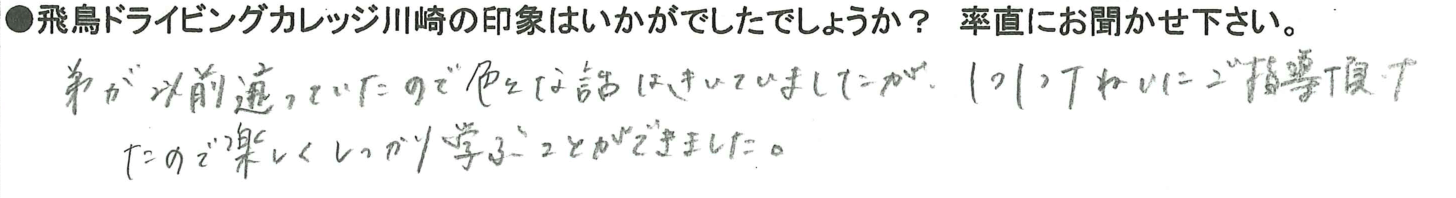 ●飛鳥ドライビングカレッジ川崎の印象はいかがでしたでしょうか？　率直にお聞かせ下さい。
弟が以前通っていたので色々な話はきいていましたが、1つ1つていねいにご指導頂け
たので楽しくしっかり学ぶことができました。